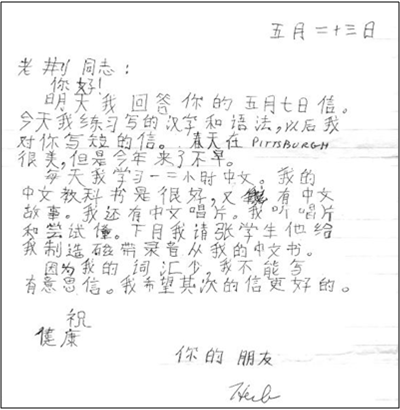 五月二十三日
老荆同志：
你好！
明天我回答你的五月七日信。
今天我练习写的汉字和语法，以后我
对你写短的信。春天在 PITTSBURGH
很美，但是今年来了不早。
每天我学习一二小时中文。我的
中文教科书是很好，又有中文
故事。我还有中文唱片。我听唱片
和尝试懂。下月我请张学生他给
我制造磁带录音从我的中文书。
因为我的词汇少，我不能写
有意思信。我希望其次的信更好的。
祝
健康
你的朋友
Herb